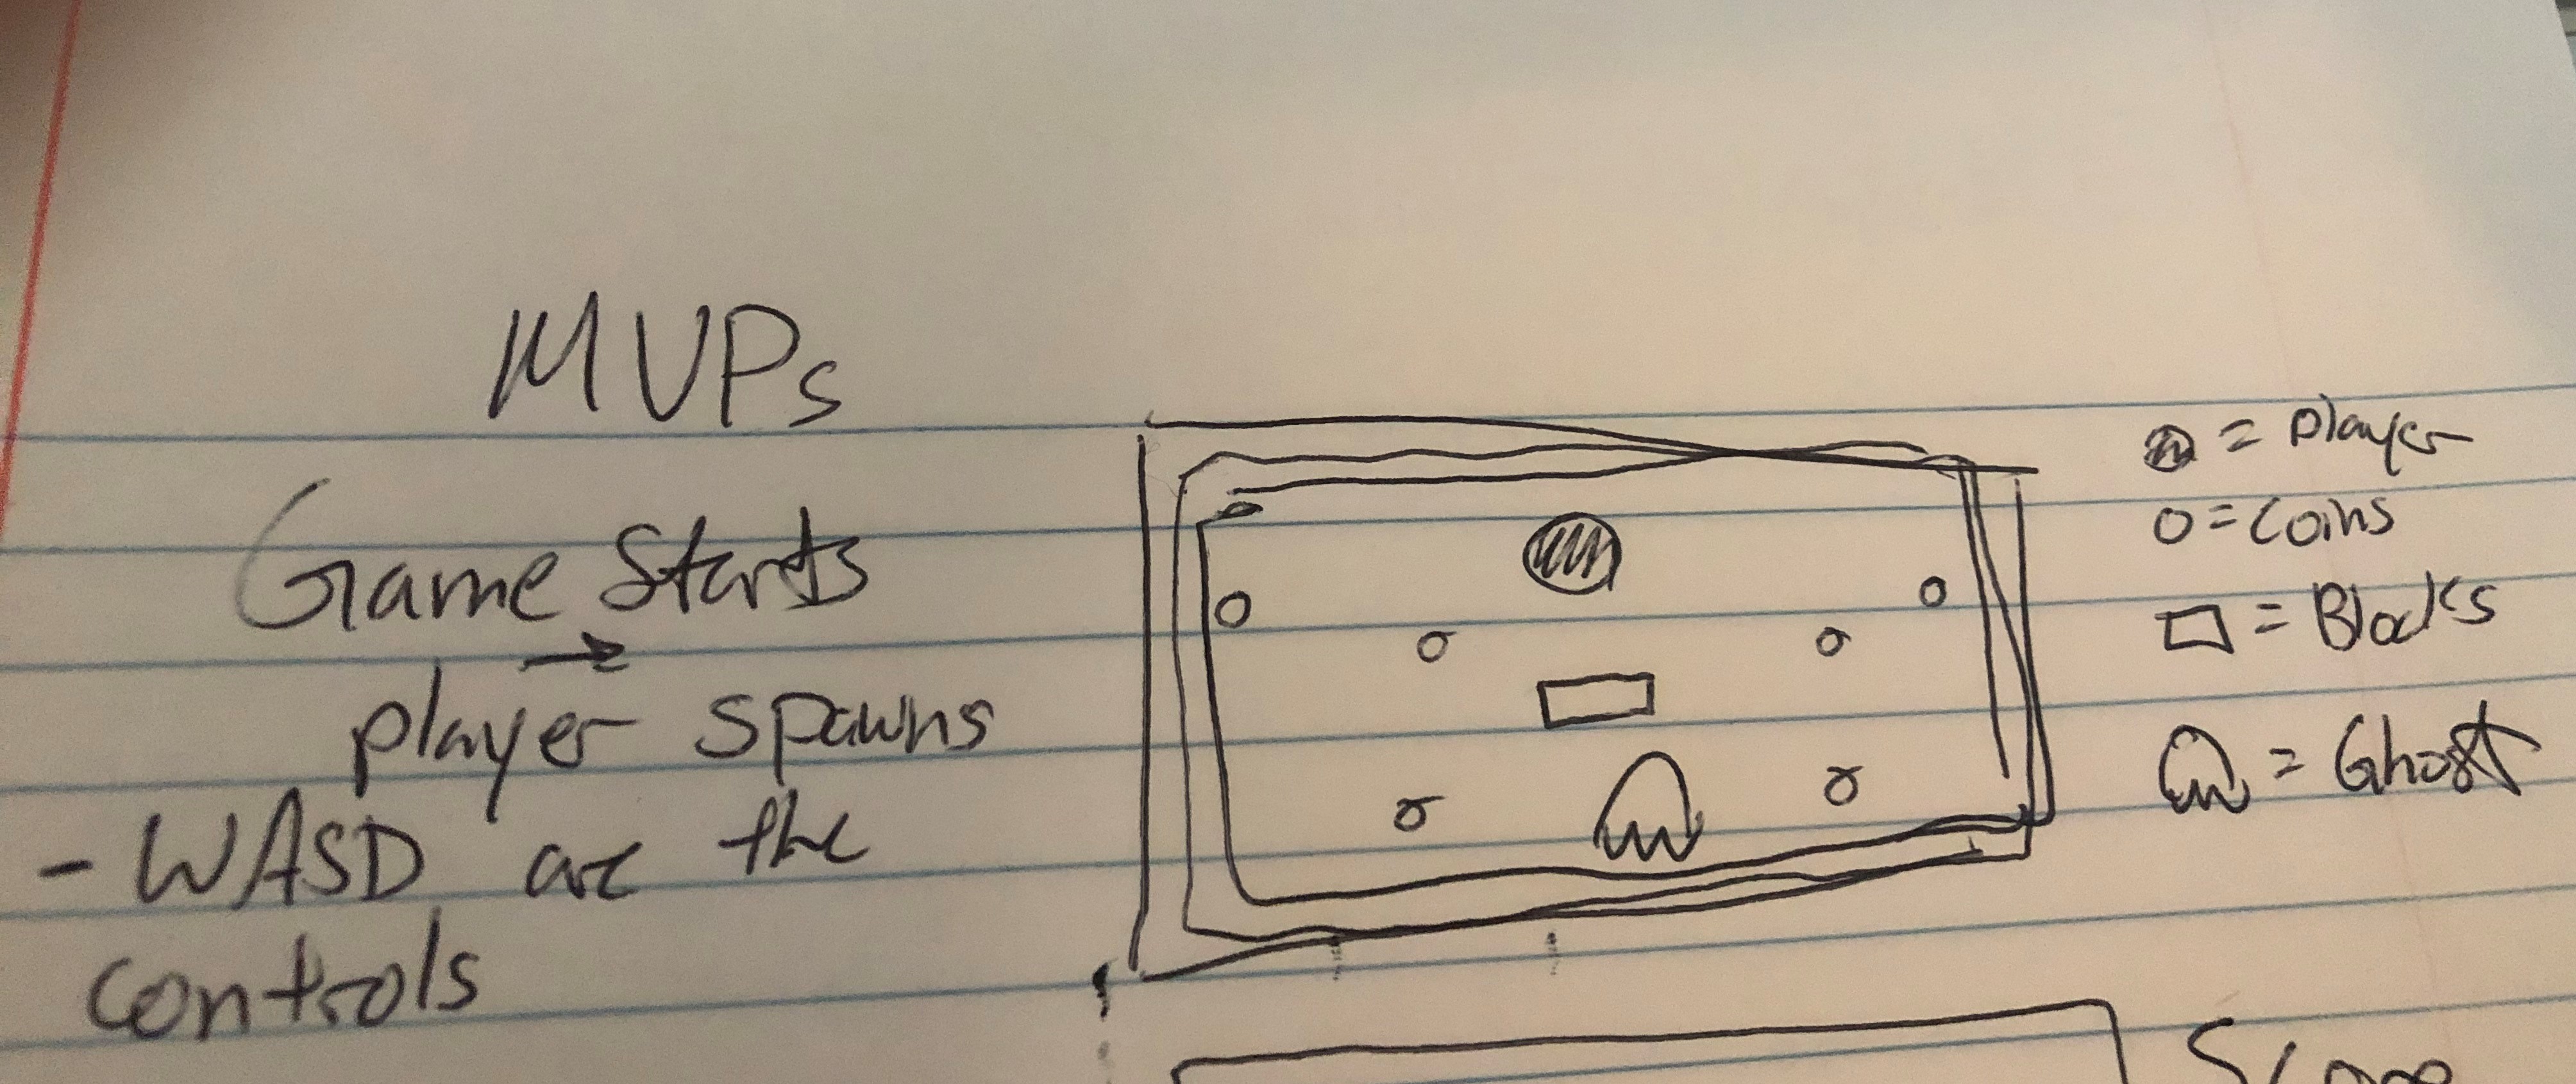 MVPs
Game Starts
→
player spawns
- WASD are the
controls
= player
= Coins
= Blocks
= Ghost